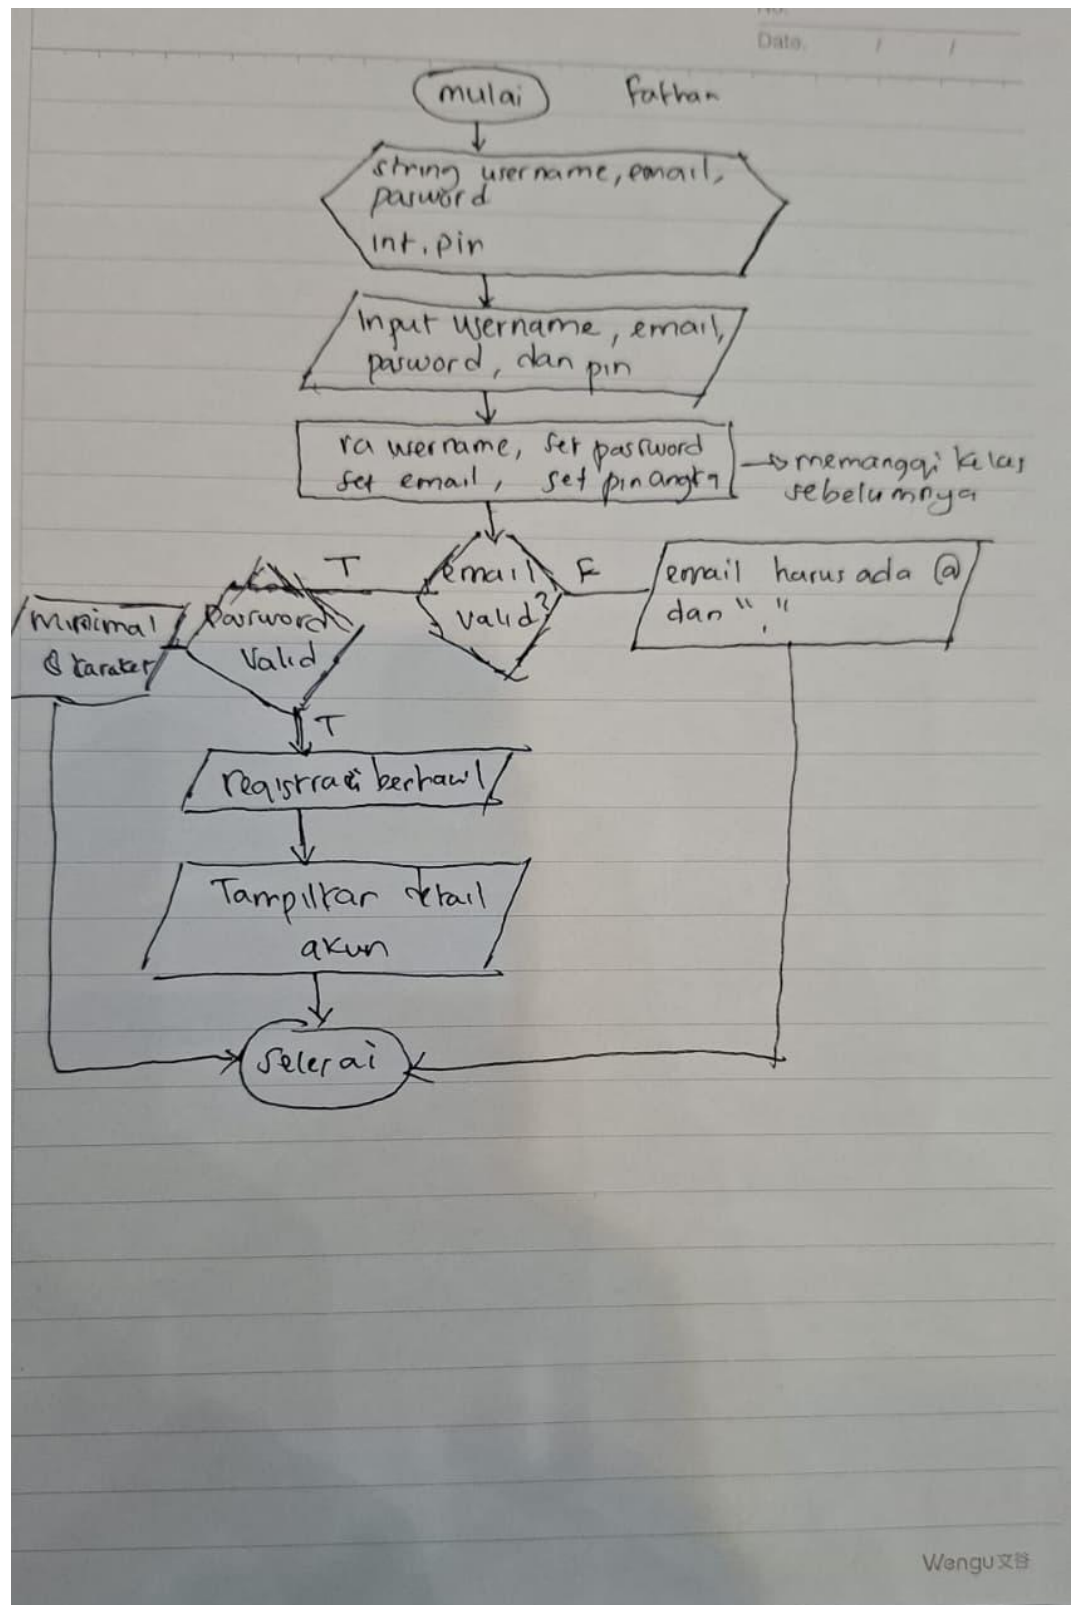 Date.
mulai
Fathan
string username, email,
pasword
int. pin
Input username, email,
pasword, dan pin
ra username, set password
set email, set pin angka
memanggi kelas
sebelumnya
T
email
valid?
F
email harus ada @
dan "."
minimal
8 karakter
Password
Valid
T
registrasi berhasil
Tampilkan detail
akun
Selesai
Wengu文谷